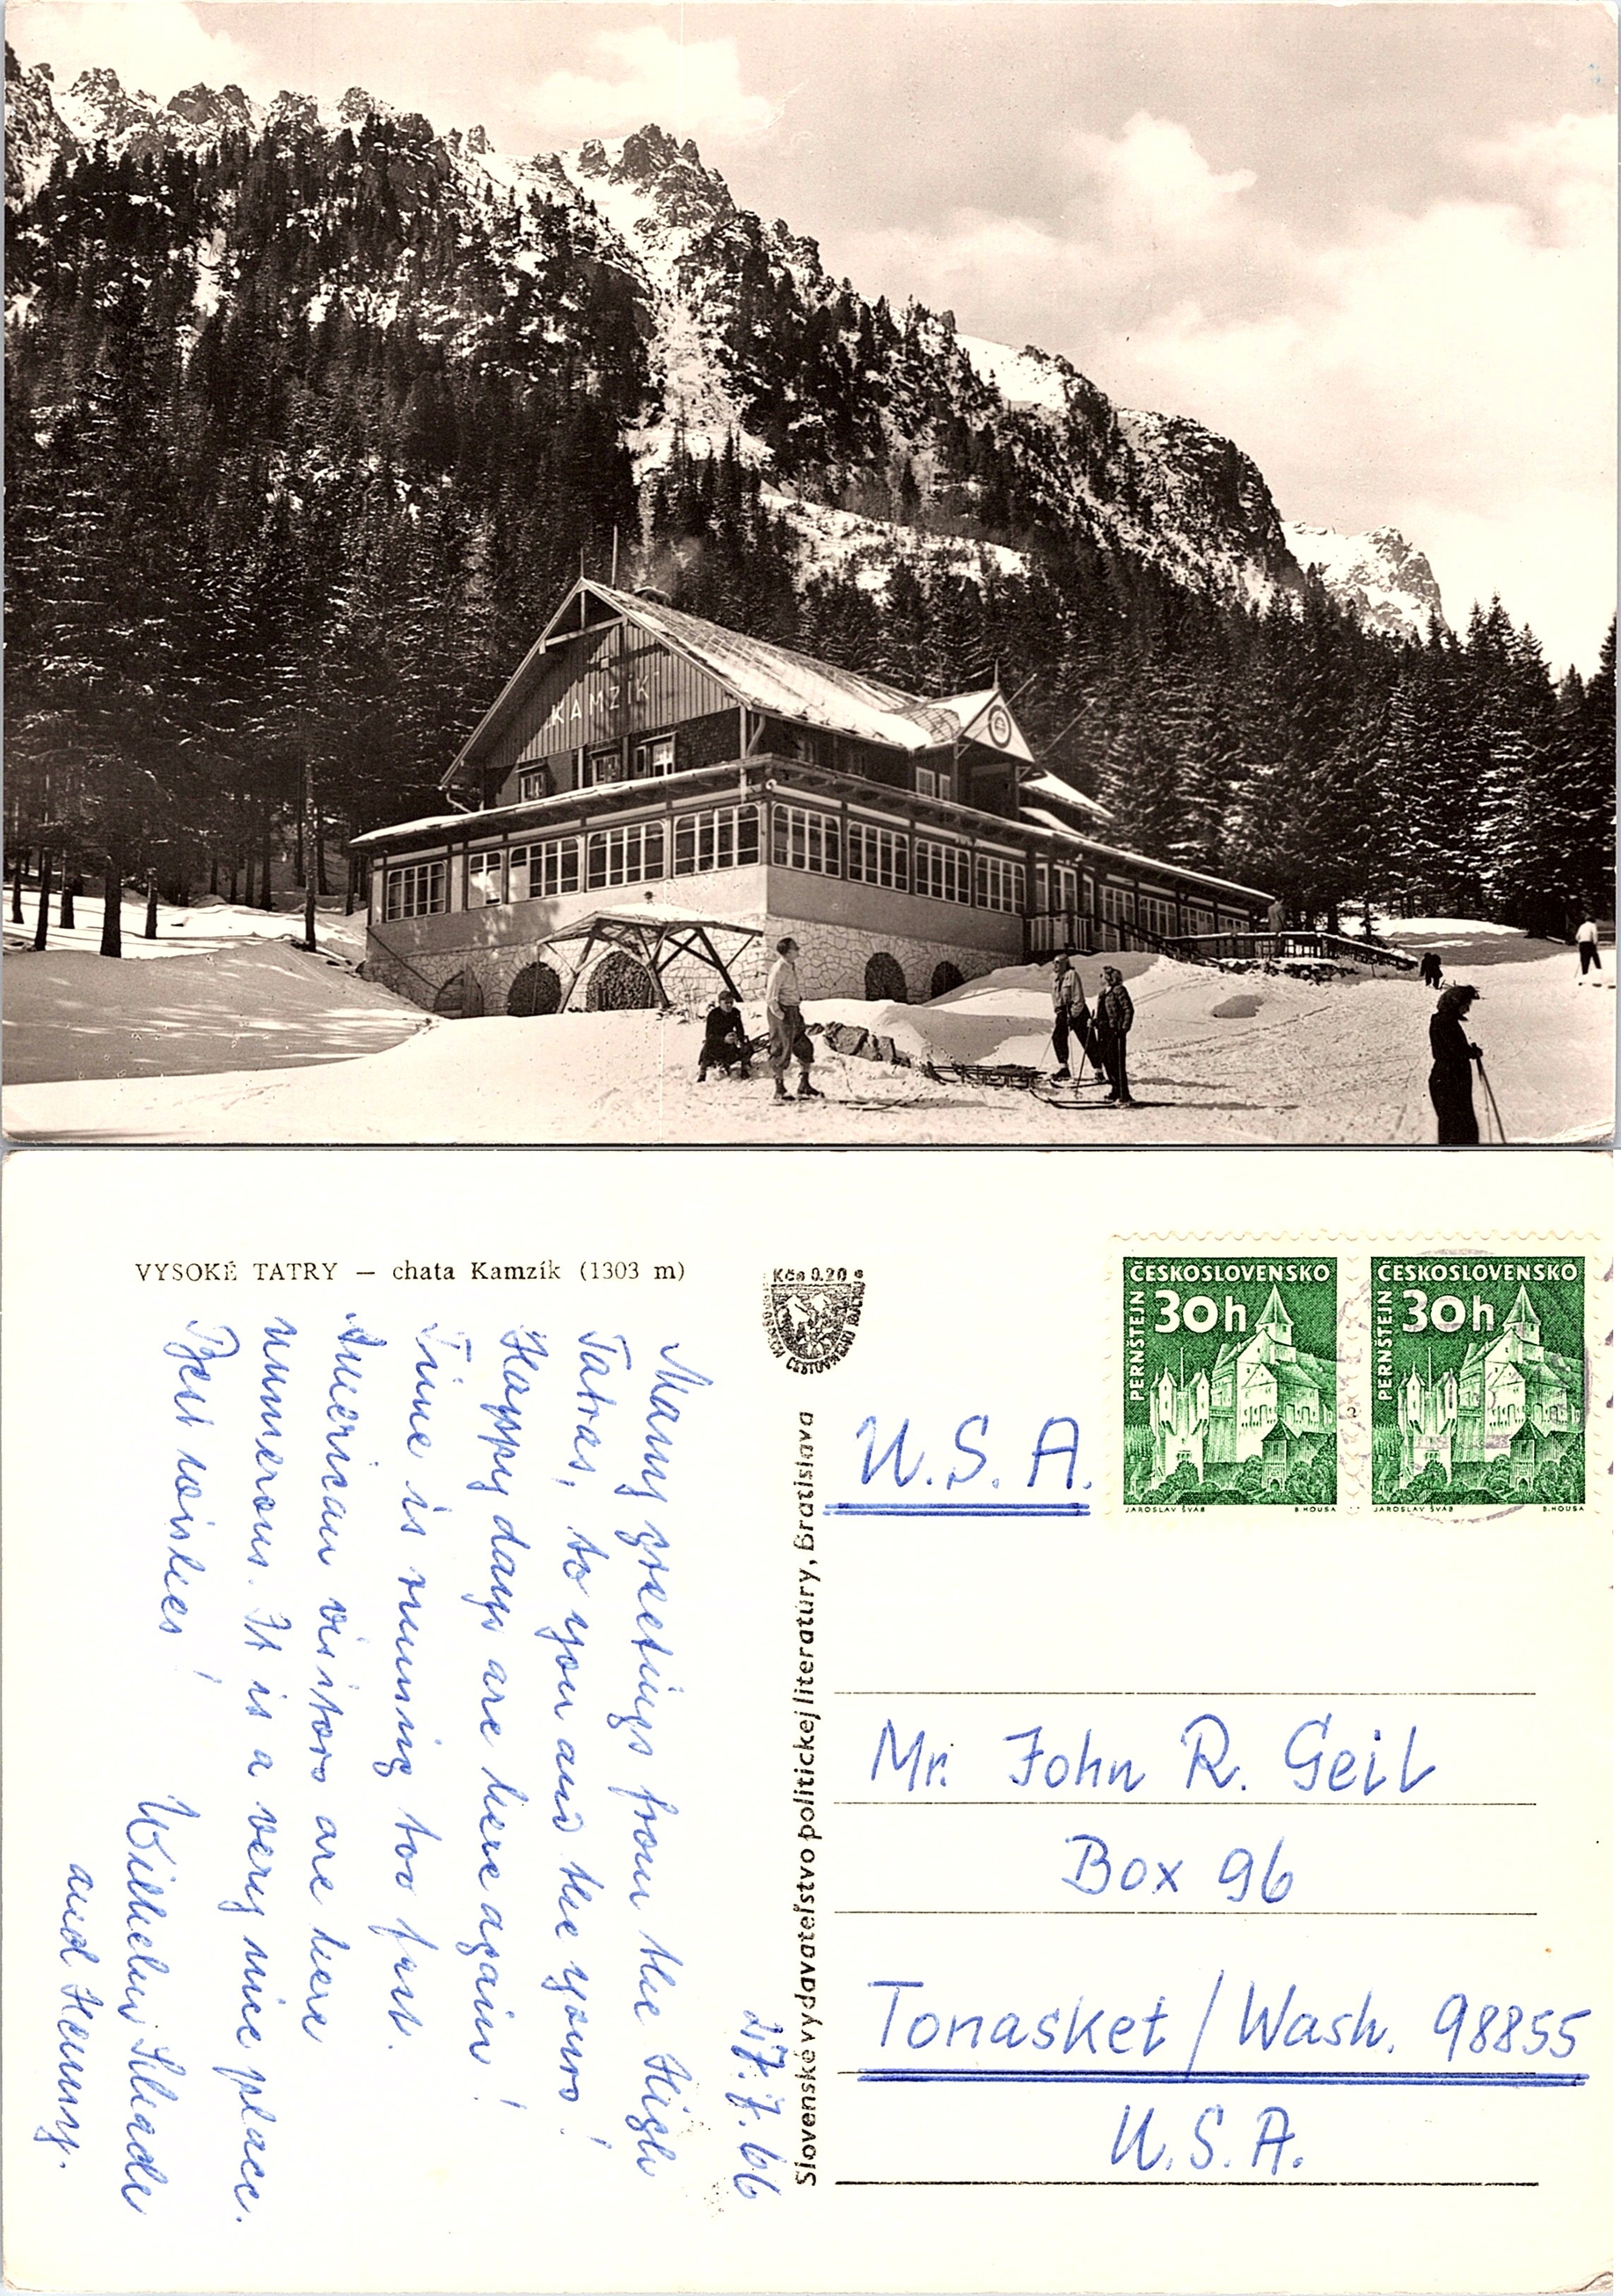 KAMZÍK
VYSOKÉ TATRY — chata Kamzík (1303 m)
Kčs 0.20
27.7.66
Many greetings from the High
Tatras, to you and the yours!
Happy days are here again!
Time is running too fast.
American visitors are here
numerous. It is a very nice place.
Best wishes!
Wilhelm
and Henny.
Slovenské vydavateľstvo politickej literatúry, Bratislava
ČESKOSLOVENSKO
30h
PERNŠTEJN
JAROSLAV ŠVÁB B. HOUSA
ČESKOSLOVENSKO
30h
PERNŠTEJN
JAROSLAV ŠVÁB B. HOUSA
U.S.A.
Mr. John R. Geil
Box 96
Tonasket / Wash. 98855
U.S.A.